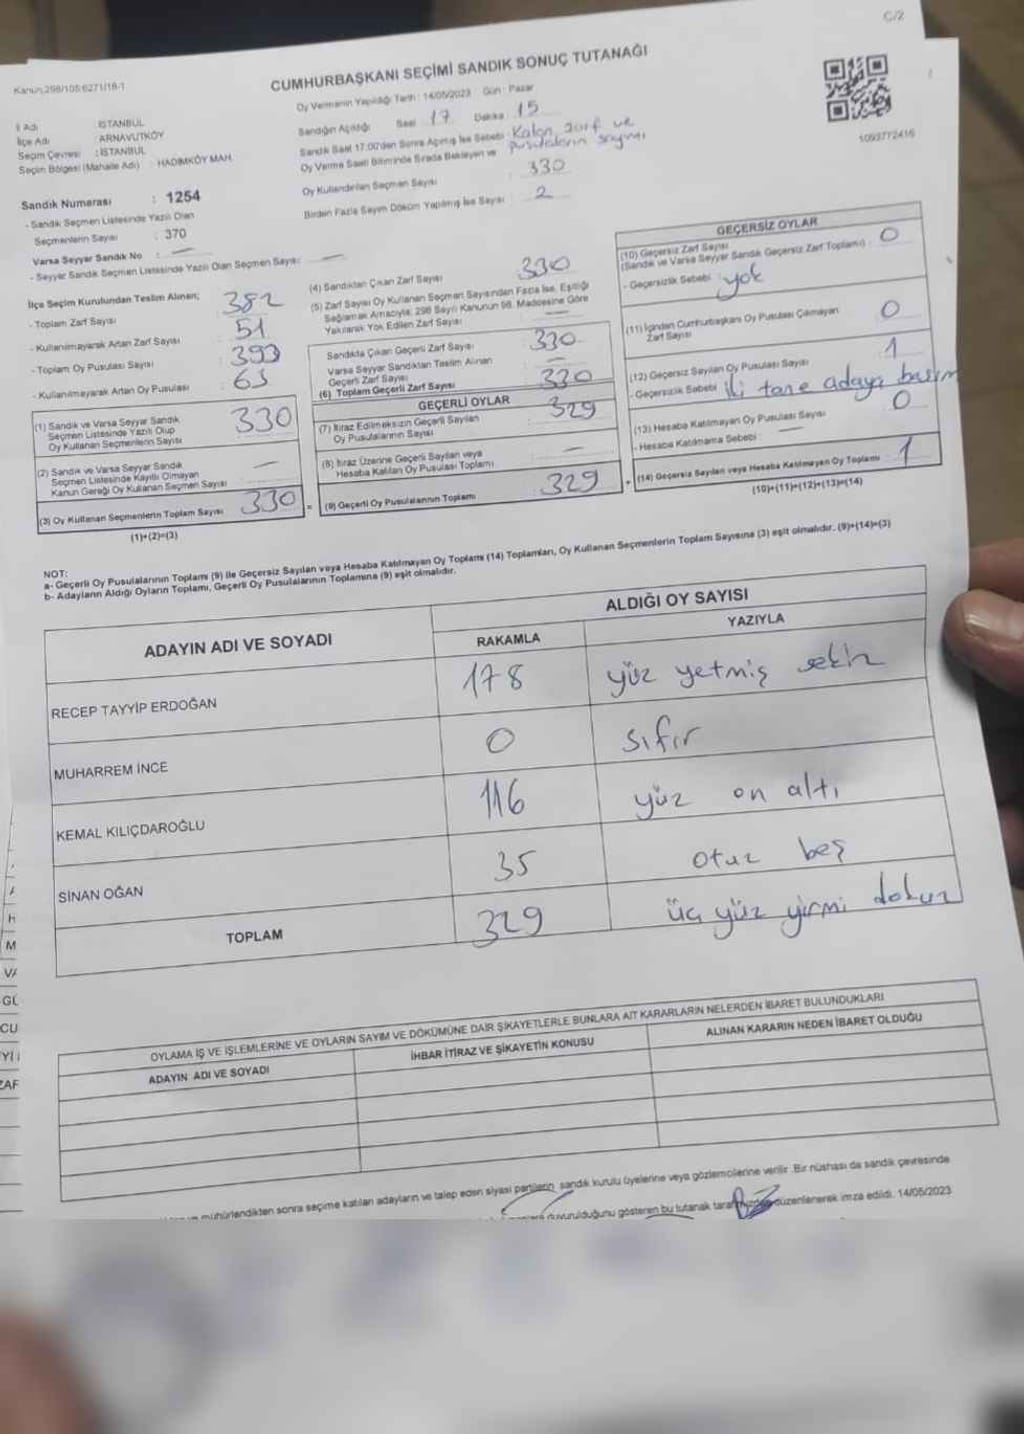 C/2
Kanun:298/105:6271/18-1
CUMHURBAŞKANI SEÇİMİ SANDIK SONUÇ TUTANAĞI
Oy Vermenin Yapıldığı Tarih : 14/05/2023 Gün : Pazar
İl Adı : İSTANBUL
İlçe Adı : ARNAVUTKÖY
Seçim Çevresi : İSTANBUL
Seçim Bölgesi (Mahalle Adı) : HADIMKÖY MAH.
Sandığın Açıldığı Saat 17 Dakika 15
Sandık Saat 17:00'den Sonra Açılmış İse Sebebi Kalan zarf ve
Oy Verme Saati Bitiminde Sırada Bekleyen ve pusulaların sayımı
Oy Kullandırılan Seçmen Sayısı 330
Birden Fazla Sayım Döküm Yapılmış İse Sayısı 2
1093772416
Sandık Numarası : 1254
- Sandık Seçmen Listesinde Yazılı Olan
Seçmenlerin Sayısı : 370
Varsa Seyyar Sandık No : —
- Seyyar Sandık Seçmen Listesinde Yazılı Olan Seçmen Sayısı —
İlçe Seçim Kurulundan Teslim Alınan;
- Toplam Zarf Sayısı 382
- Kullanılmayarak Artan Zarf Sayısı 51
- Toplam Oy Pusulası Sayısı 393
- Kullanılmayarak Artan Oy Pusulası 63
(1) Sandık ve Varsa Seyyar Sandık
Seçmen Listesinde Yazılı Olup
Oy Kullanan Seçmenlerin Sayısı 330
(2) Sandık ve Varsa Seyyar Sandık
Seçmen Listesinde Kayıtlı Olmayan
Kanun Gereği Oy Kullanan Seçmen Sayısı —
(3) Oy Kullanan Seçmenlerin Toplam Sayısı 330 =
(1)+(2)=(3)
(4) Sandıktan Çıkan Zarf Sayısı 330
(5) Zarf Sayısı Oy Kullanan Seçmen Sayısından Fazla İse, Eşitliği
Sağlamak Amacıyla, 298 Sayılı Kanunun 98. Maddesine Göre
Yakılarak Yok Edilen Zarf Sayısı —
Sandıkta Çıkan Geçerli Zarf Sayısı 330
Varsa Seyyar Sandıktan Teslim Alınan
Geçerli Zarf Sayısı —
(6) Toplam Geçerli Zarf Sayısı 330
GEÇERLİ OYLAR
(7) İtiraz Edilmeksizin Geçerli Sayılan
Oy Pusulalarının Sayısı 329
(8) İtiraz Üzerine Geçerli Sayılan veya
Hesaba Katılan Oy Pusulası Toplamı —
(9) Geçerli Oy Pusulalarının Toplamı 329 +
GEÇERSİZ OYLAR
(10) Geçersiz Zarf Sayısı
(Sandık ve Varsa Seyyar Sandık Geçersiz Zarf Toplamı) : 0
- Geçersizlik Sebebi : yok
(11) İçinden Cumhurbaşkanı Oy Pusulası Çıkmayan
Zarf Sayısı 0
(12) Geçersiz Sayılan Oy Pusulası Sayısı 1
- Geçersizlik Sebebi : iki tane adaya basım
(13) Hesaba Katılmayan Oy Pusulası Sayısı 0
- Hesaba Katılmama Sebebi : —
(14) Geçersiz Sayılan veya Hesaba Katılmayan Oy Toplamı 1
(10)+(11)+(12)+(13)=(14)
NOT:
a- Geçerli Oy Pusulalarının Toplamı (9) ile Geçersiz Sayılan veya Hesaba Katılmayan Oy Toplamı (14) Toplamları, Oy Kullanan Seçmenlerin Toplam Sayısına (3) eşit olmalıdır. (9)+(14)=(3)
b- Adayların Aldığı Oyların Toplamı, Geçerli Oy Pusulalarının Toplamına (9) eşit olmalıdır.
ADAYIN ADI VE SOYADI
ALDIĞI OY SAYISI
RAKAMLA YAZIYLA
RECEP TAYYİP ERDOĞAN 178 yüz yetmiş sekiz
MUHARREM İNCE 0 sıfır
KEMAL KILIÇDAROĞLU 116 yüz on altı
SİNAN OĞAN 35 otuz beş
TOPLAM 329 üç yüz yirmi dokuz
OYLAMA İŞ VE İŞLEMLERİNE VE OYLARIN SAYIM VE DÖKÜMÜNE DAİR ŞİKAYETLERLE BUNLARA AİT KARARLARIN NELERDEN İBARET BULUNDUKLARI
ADAYIN ADI VE SOYADI İHBAR İTİRAZ VE ŞİKAYETİN KONUSU ALINAN KARARIN NEDEN İBARET OLDUĞU
mühürlendikten sonra seçime katılan adayların ve talep eden siyasi partilerin sandık kurulu üyelerine veya gözlemcilerine verilir. Bir nüshası da sandık çevresinde
duyurulduğunu gösteren bu tutanak tarafımızdan düzenlenerek imza edildi. 14/05/2023
H
M
VA
GÜ
CU
ZAF